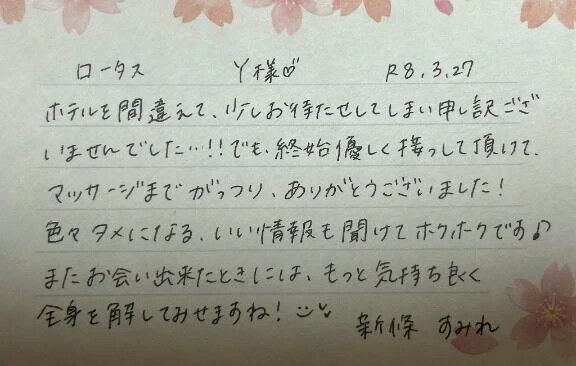 ロータス Y様♡ R8.3.27
ホテルを間違えて、少しお待たせしてしまい申し訳ござ
いませんでした…!!でも、終始優しく接っして頂けて、
マッサージまでがっつり、ありがとうございました!
色々タメになる、いい情報も聞けてホクホクです♪
またお会い出来たときには、もっと気持ち良く
全身を解してみせますね!
新條 すみれ